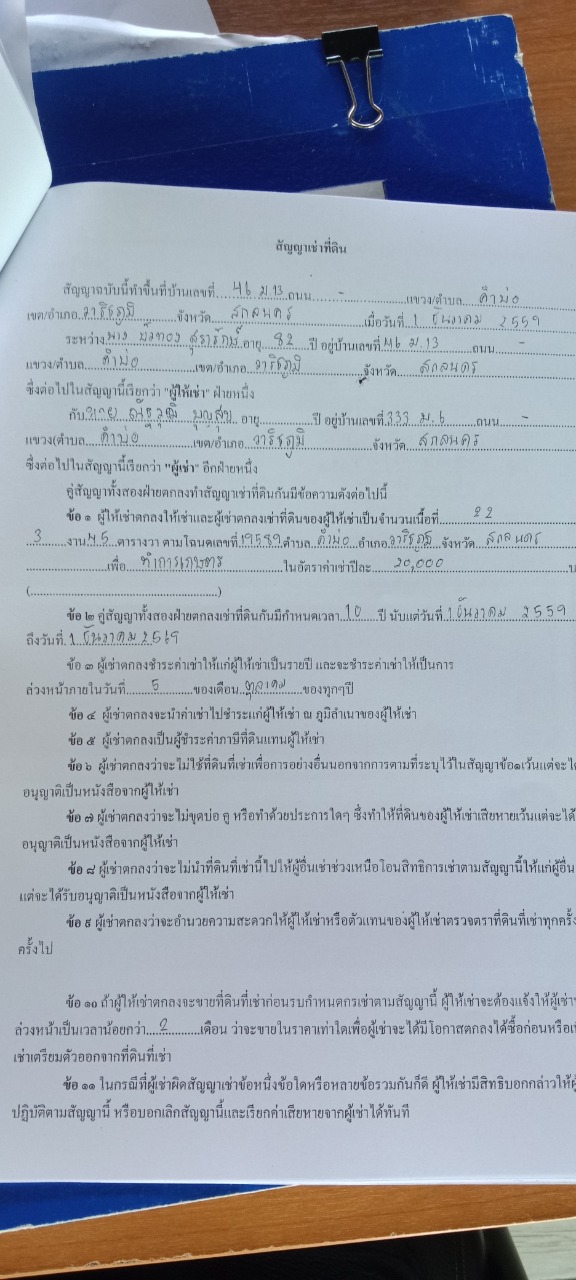 สัญญาเช่าที่ดิน
สัญญาฉบับนี้ทำขึ้นที่บ้านเลขที่ 46 ม.13 ถนน - แขวง/ตำบล คำบ่อ
เขต/อำเภอ วาริชภูมิ จังหวัด สกลนคร เมื่อวันที่ 1 ธันวาคม 2559
ระหว่าง นาง บัวทอง สุรารักษ์ อายุ 82 ปี อยู่บ้านเลขที่ 46 ม.13 ถนน -
แขวง/ตำบล คำบ่อ เขต/อำเภอ วาริชภูมิ จังหวัด สกลนคร
ซึ่งต่อไปในสัญญานี้เรียกว่า "ผู้ให้เช่า" ฝ่ายหนึ่ง
กับ นาย ณัฐวุฒิ บุญสุข อายุ ปี อยู่บ้านเลขที่ 333 ม.6 ถนน -
แขวง/ตำบล คำบ่อ เขต/อำเภอ วาริชภูมิ จังหวัด สกลนคร
ซึ่งต่อไปในสัญญานี้เรียกว่า "ผู้เช่า" อีกฝ่ายหนึ่ง
คู่สัญญาทั้งสองฝ่ายตกลงทำสัญญาเช่าที่ดินกันมีข้อความดังต่อไปนี้
ข้อ ๑ ผู้ให้เช่าตกลงให้เช่าและผู้เช่าตกลงเช่าที่ดินของผู้ให้เช่าเป็นจำนวนเนื้อที่ 22
3 งาน 45 ตารางวา ตามโฉนดเลขที่ 19589 ตำบล คำบ่อ อำเภอ วาริชภูมิ จังหวัด สกลนคร
เพื่อ ทำการเกษตร ในอัตราค่าเช่าปีละ 20,000
(..............................)
ข้อ ๒ คู่สัญญาทั้งสองฝ่ายตกลงเช่าที่ดินกันมีกำหนดเวลา 10 ปี นับแต่วันที่ 1 ธันวาคม 2559
ถึงวันที่ 1 ธันวาคม 2569
ข้อ ๓ ผู้เช่าตกลงชำระค่าเช่าให้แก่ผู้ให้เช่าเป็นรายปี และจะชำระค่าเช่าให้เป็นการ
ล่วงหน้าภายในวันที่ 5 ของเดือน ตุลาคม ของทุกๆปี
ข้อ ๔ ผู้เช่าตกลงจะนำค่าเช่าไปชำระแก่ผู้ให้เช่า ณ ภูมิลำเนาของผู้ให้เช่า
ข้อ ๕ ผู้เช่าตกลงเป็นผู้ชำระค่าภาษีที่ดินแทนผู้ให้เช่า
ข้อ ๖ ผู้เช่าตกลงว่าจะไม่ใช้ที่ดินที่เช่าเพื่อการอย่างอื่นนอกจากการตามที่ระบุไว้ในสัญญาข้อ๑เว้นแต่จะได้
อนุญาติเป็นหนังสือจากผู้ให้เช่า
ข้อ ๗ ผู้เช่าตกลงว่าจะไม่ขุดบ่อ คู หรือทำด้วยประการใดๆ ซึ่งทำให้ที่ดินของผู้ให้เช่าเสียหายเว้นแต่จะได้
อนุญาติเป็นหนังสือจากผู้ให้เช่า
ข้อ ๘ ผู้เช่าตกลงว่าจะไม่นำที่ดินที่เช่านี้ไปให้ผู้อื่นเช่าช่วงเหนือโอนสิทธิการเช่าตามสัญญานี้ให้แก่ผู้อื่น
แต่จะได้รับอนุญาติเป็นหนังสือจากผู้ให้เช่า
ข้อ ๙ ผู้เช่าตกลงว่าจะอำนวยความสะดวกให้ผู้ให้เช่าหรือตัวแทนของผู้ให้เช่าตรวจตราที่ดินที่เช่าทุกครั้ง
ครั้งไป
ข้อ ๑๐ ถ้าผู้ให้เช่าตกลงจะขายที่ดินที่เช่าก่อนรบกำหนดกรเช่าตามสัญญานี้ ผู้ให้เช่าจะต้องแจ้งให้ผู้เช่า
ล่วงหน้าเป็นเวลาน้อยกว่า 2 เดือน ว่าจะขายในราคาเท่าใดเพื่อผู้เช่าจะได้มีโอกาสตกลงได้ซื้อก่อนหรือ
เช่าเตรียมตัวออกจากที่ดินที่เช่า
ข้อ ๑๑ ในกรณีที่ผู้เช่าผิดสัญญาเช่าข้อหนึ่งข้อใดหรือหลายข้อรวมกันก็ดี ผู้ให้เช่ามีสิทธิบอกกล่าวให้
ปฏิบัติตามสัญญานี้ หรือบอกเลิกสัญญานี้และเรียกค่าเสียหายจากผู้เช่าได้ทันที